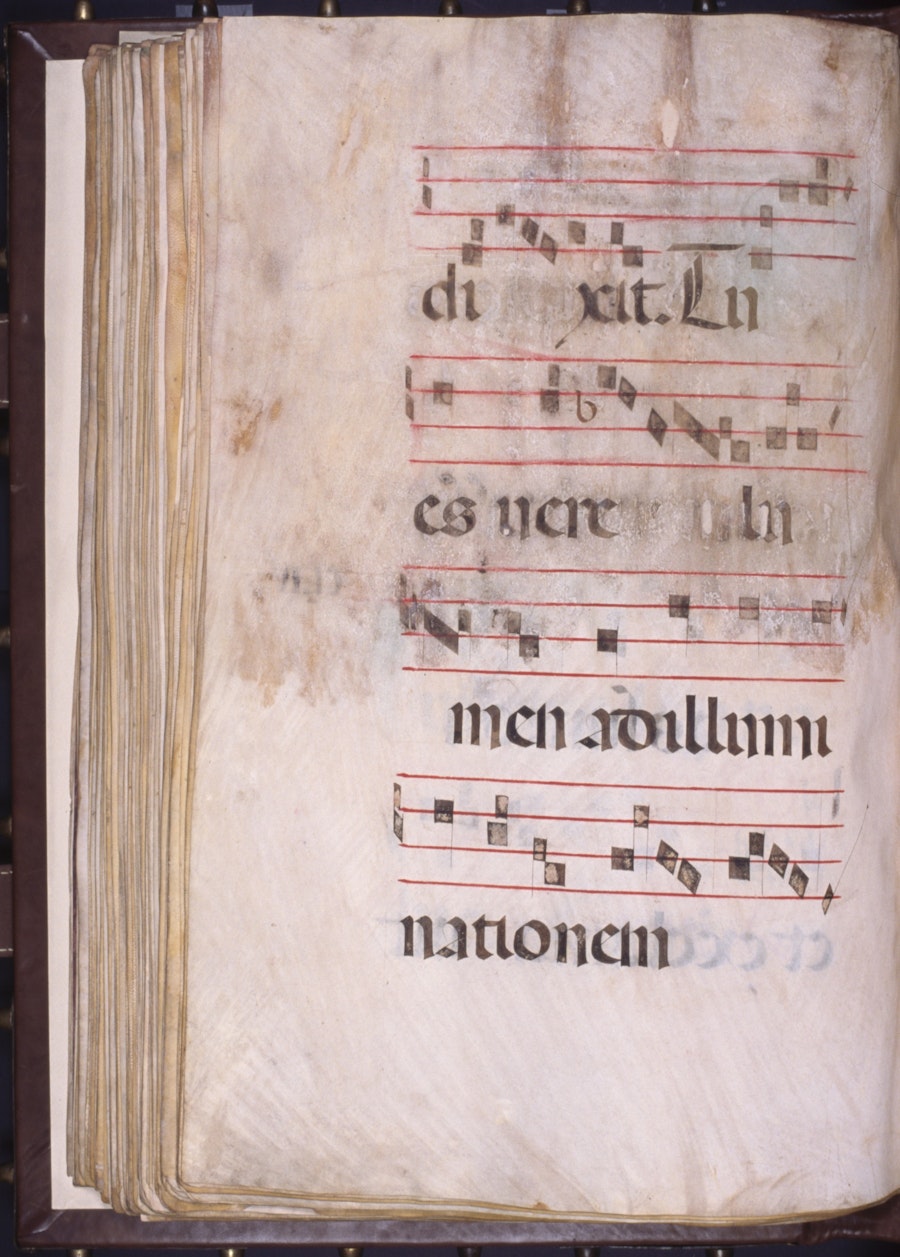 di xit. Tu
es uere lu
men adillumi
nationem